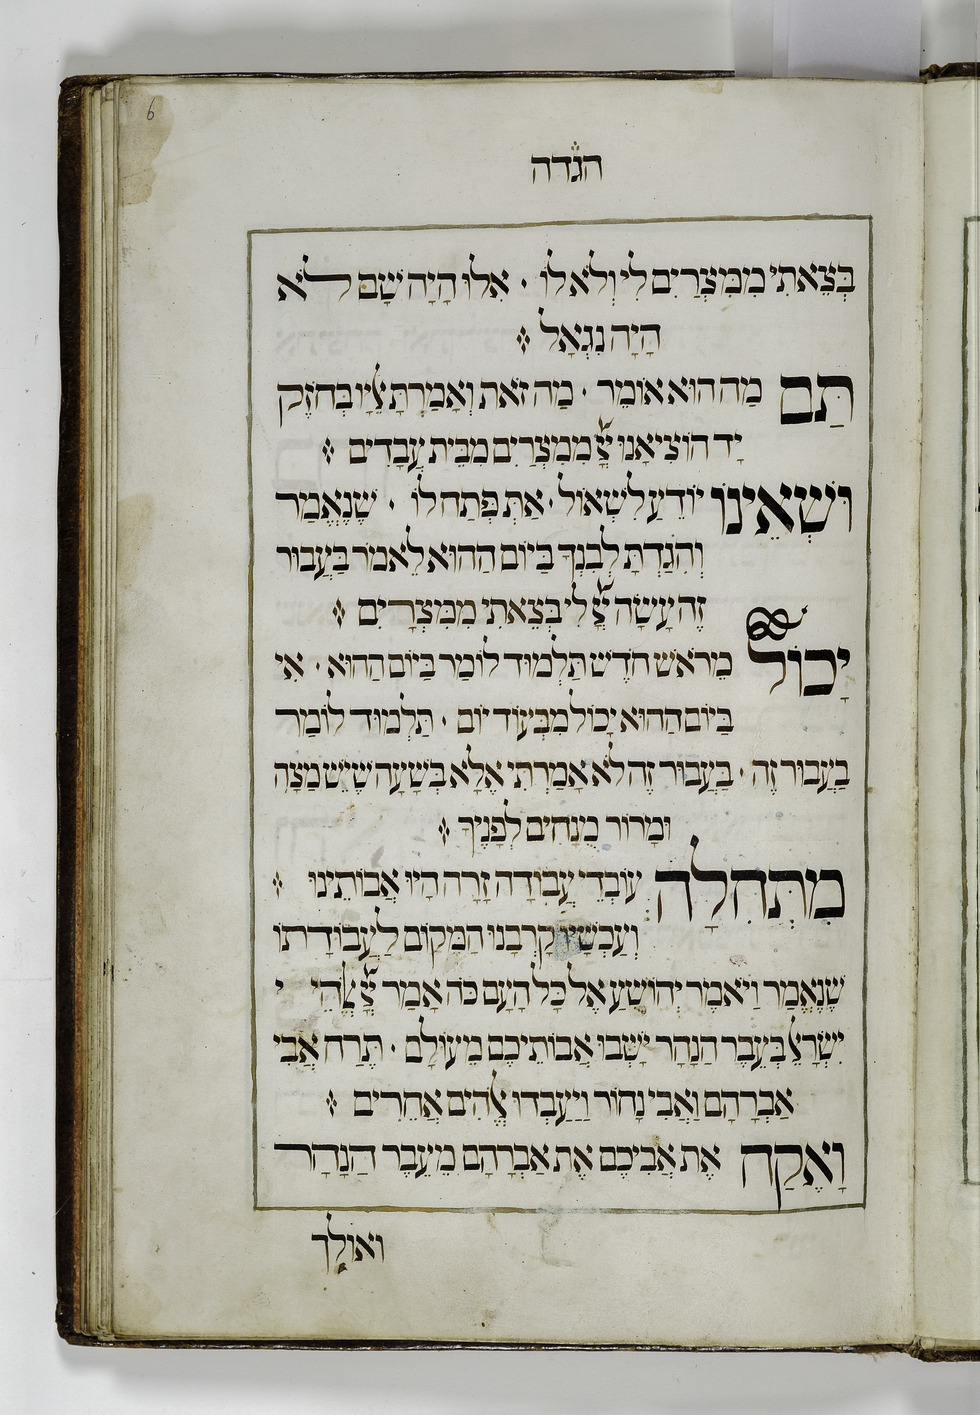 6
הגדה
בְּצֵאתִי מִמִּצְרַיִם לִי וְלֹא לוֹ · אִלּוּ הָיָה שָׁם לֹא
הָיָה נִגְאָל
תַּם מַה הוּא אוֹמֵר · מַה זֹּאת וְאָמַרְתָּ אֵלָיו בְּחֹזֶק
יָד הוֹצִיאָנוּ יְיָ מִמִּצְרַיִם מִבֵּית עֲבָדִים
וְשֶׁאֵינוֹ יוֹדֵעַ לִשְׁאוֹל · אַתְּ פְּתַח לוֹ · שֶׁנֶּאֱמַר
וְהִגַּדְתָּ לְבִנְךָ בַּיּוֹם הַהוּא לֵאמֹר בַּעֲבוּר
זֶה עָשָׂה יְיָ לִי בְּצֵאתִי מִמִּצְרָיִם
יָכוֹל מֵרֹאשׁ חֹדֶשׁ תַּלְמוּד לוֹמַר בַּיּוֹם הַהוּא · אִי
בַּיּוֹם הַהוּא יָכוֹל מִבְּעוֹד יוֹם · תַּלְמוּד לוֹמַר
בַּעֲבוּר זֶה · בַּעֲבוּר זֶה לֹא אָמַרְתִּי אֶלָּא בְּשָׁעָה שֶׁיֵּשׁ מַצָּה
וּמָרוֹר מֻנָּחִים לְפָנֶיךָ
מִתְּחִלָּה עוֹבְדֵי עֲבוֹדָה זָרָה הָיוּ אֲבוֹתֵינוּ
וְעַכְשָׁיו קֵרְבָנוּ הַמָּקוֹם לַעֲבוֹדָתוֹ
שֶׁנֶּאֱמַר וַיֹּאמֶר יְהוֹשֻׁעַ אֶל כָּל הָעָם כֹּה אָמַר יְיָ אֱלֹהֵי י
יִשְׂרָאֵל בְּעֵבֶר הַנָּהָר יָשְׁבוּ אֲבוֹתֵיכֶם מֵעוֹלָם · תֶּרַח אֲבִי
אַבְרָהָם וַאֲבִי נָחוֹר וַיַּעַבְדוּ אֱלֹהִים אֲחֵרִים
וָאֶקַּח אֶת אֲבִיכֶם אֶת אַבְרָהָם מֵעֵבֶר הַנָּהָר
ואולך